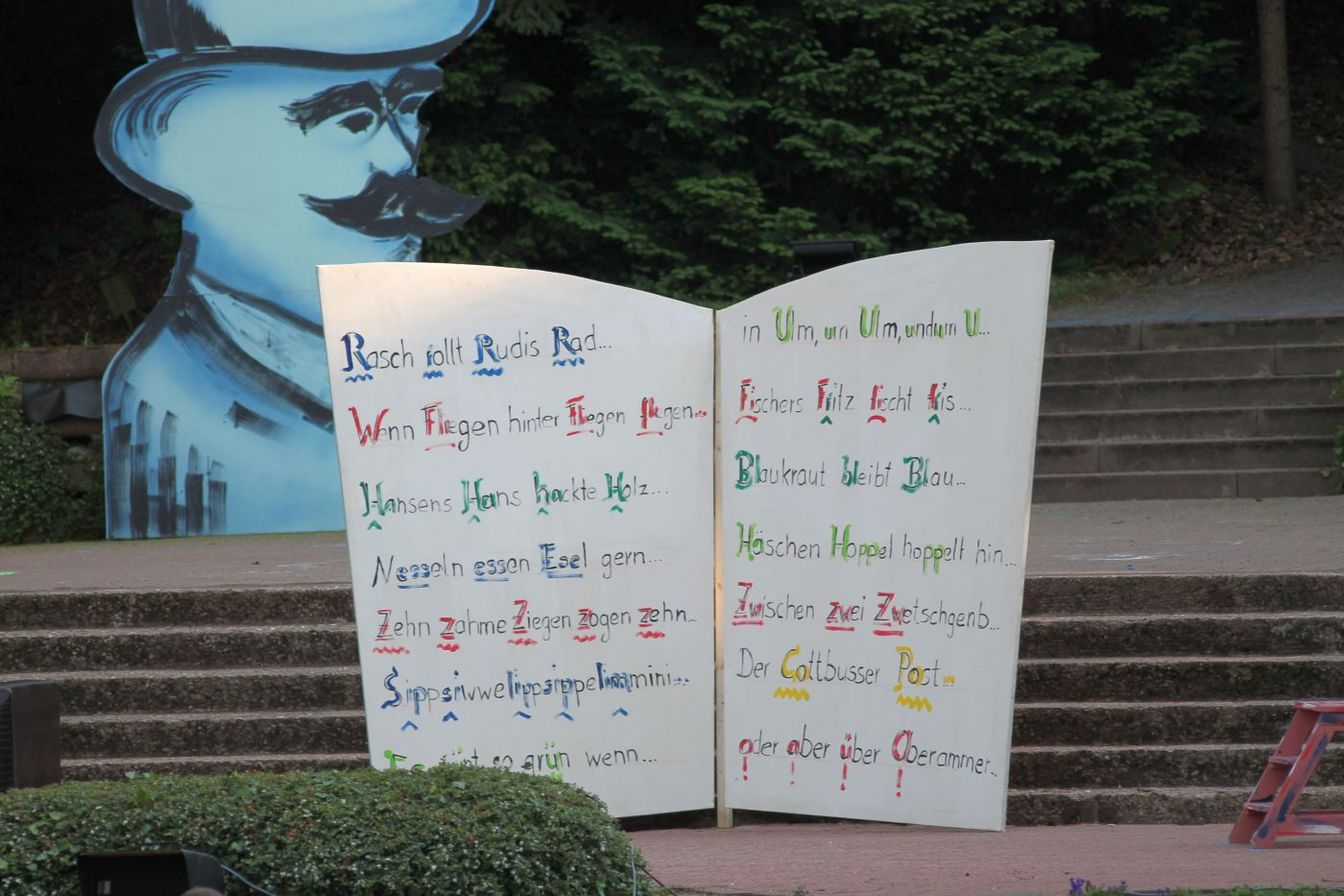 Rasch rollt Rudis Rad...
Wenn Fliegen hinter Fliegen fliegen...
Hansens Hans hackte Holz...
Nesseln essen Esel gern...
Zehn zahme Ziegen zogen zehn...
so grün wenn...
in Ulm, um Ulm, und um U...
Fischers Fritz fischt fris...
Blaukraut bleibt Blau...
Häschen Hoppel hoppelt hin...
Zwischen zwei Zwetschgenb...
Der Cottbusser Post...
oder aber über Oberammer...